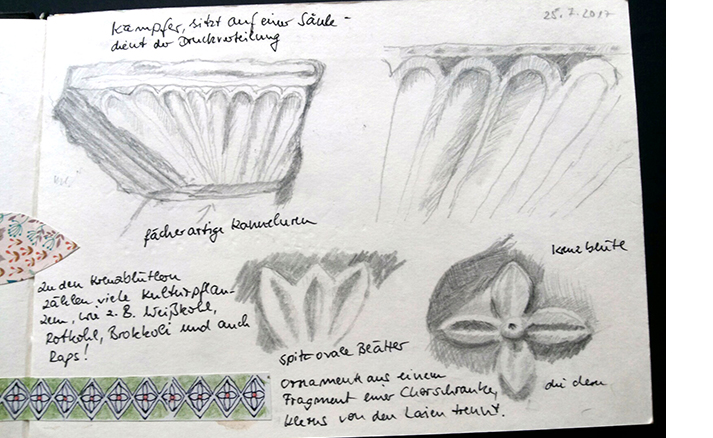 25.7.2017
Kämpfer, sitzt auf einer Säule -
dient der Druckverteilung
fächerartige Kanneluren
Kreuzblüte
Zu den Kreuzblütlern
zählen viele Kulturpflan-
zen, wie z. B. Weißkohl,
Rotkohl, Brokkoli und auch
Raps!
spitz ovale Blätter
Ornamente aus einem
Fragment einer Chorschranke,
die den
Klerus von den Laien trennt.